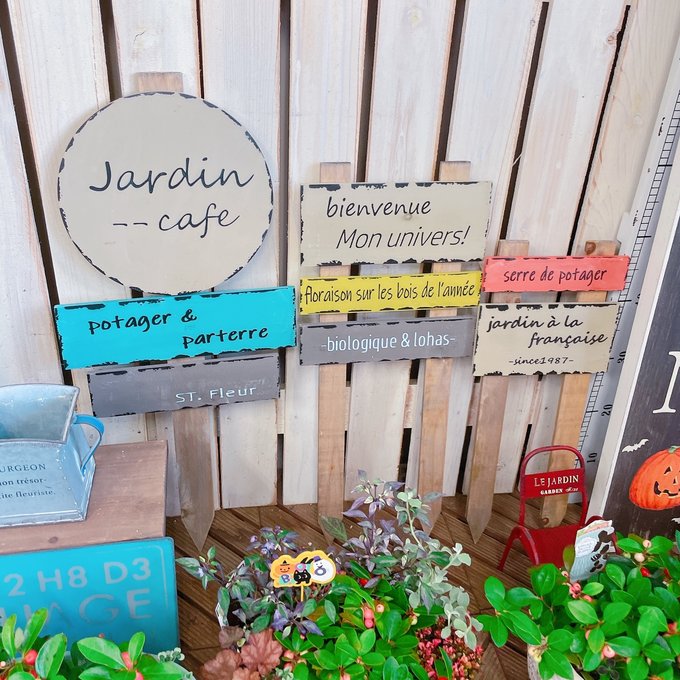 Jardin
-- cafe
potager &
parterre
ST. Fleur
bienvenue
Mon univers!
floraison sur les bois de l'année
-biologique & lohas-
serre de potager
jardin à la
française
-since1987-
LE JARDIN
GARDEN
URGEON
on trésor-
ite fleuriste.
2 H8 D3
AGE